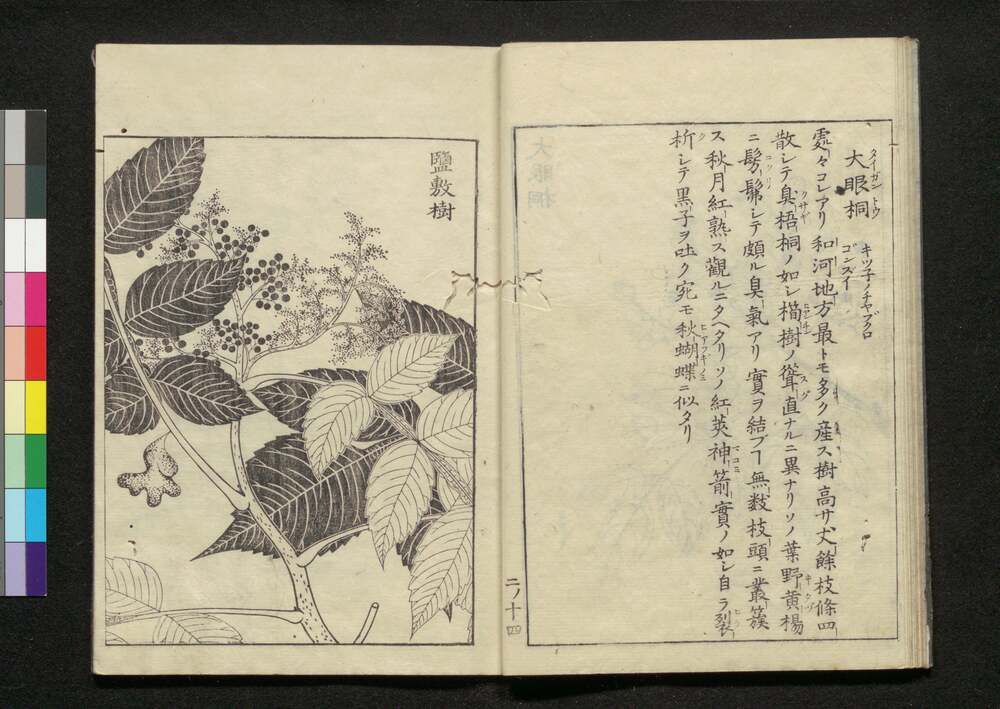 大眼桐
タイガントウ
キツ子ノチヤブクロ
ゴンズイ
處々コレアリ和河地方最トモ多ク産ス樹高サ丈餘枝條四
散シテ臭梧桐ノ如シ樗樹ノ聳直ナルニ異ナリソノ葉野黄楊
ニ髣髴シテ頗ル臭氣アリ實ヲ結ブヿ無数枝頭ニ叢簇
ス秋月紅熟ス觀ルニタヘタリソノ紅莢神箭實ノ如シ自ラ裂
柝シテ黒子ヲ吐ク宛モ秋蝴蝶ニ似タリ
鹽敷樹
二ノ十四